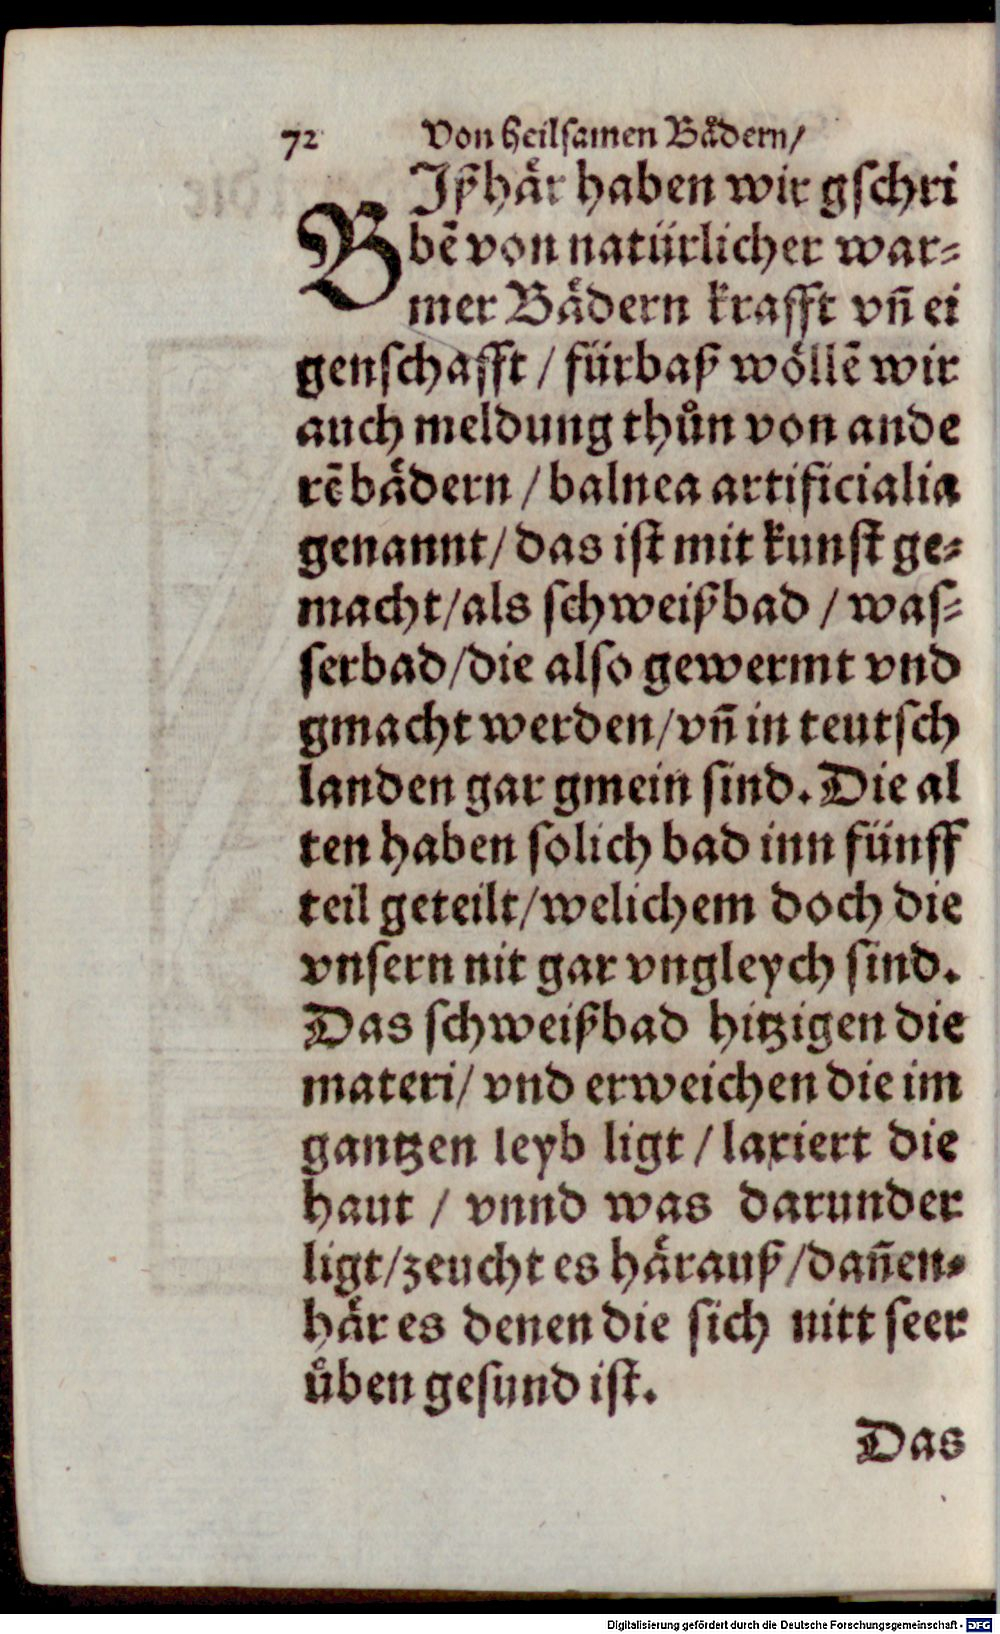 72 Von heilsamen Bådern/
BJßhår haben wir gschri
bē von natürlicher war=
mer Bådern krafft vn̄ ei
genschafft / fürbaß wöllē wir
auch meldung thůn von ande
rē bådern / balnea artificialia
genannt / das ist mit kunst ge=
macht / als schweißbad / was=
serbad / die also gewermt vnd
gmacht werden / vn̄ in teutsch
landen gar gmein sind. Die al
ten haben solich bad inn fünff
teil geteilt / welichem doch die
vnsern nit gar vngleych sind.
Das schweißbad hitzigen die
materi / vnd erweichen die im
gantzen leyb ligt / laxiert die
haut / vnnd was darunder
ligt / zeucht es hårauß / dan̄en=
hår es denen die sich nitt seer
ůben gesund ist.
Das
Digitalisierung gefördert durch die Deutsche Forschungsgemeinschaft - DFG